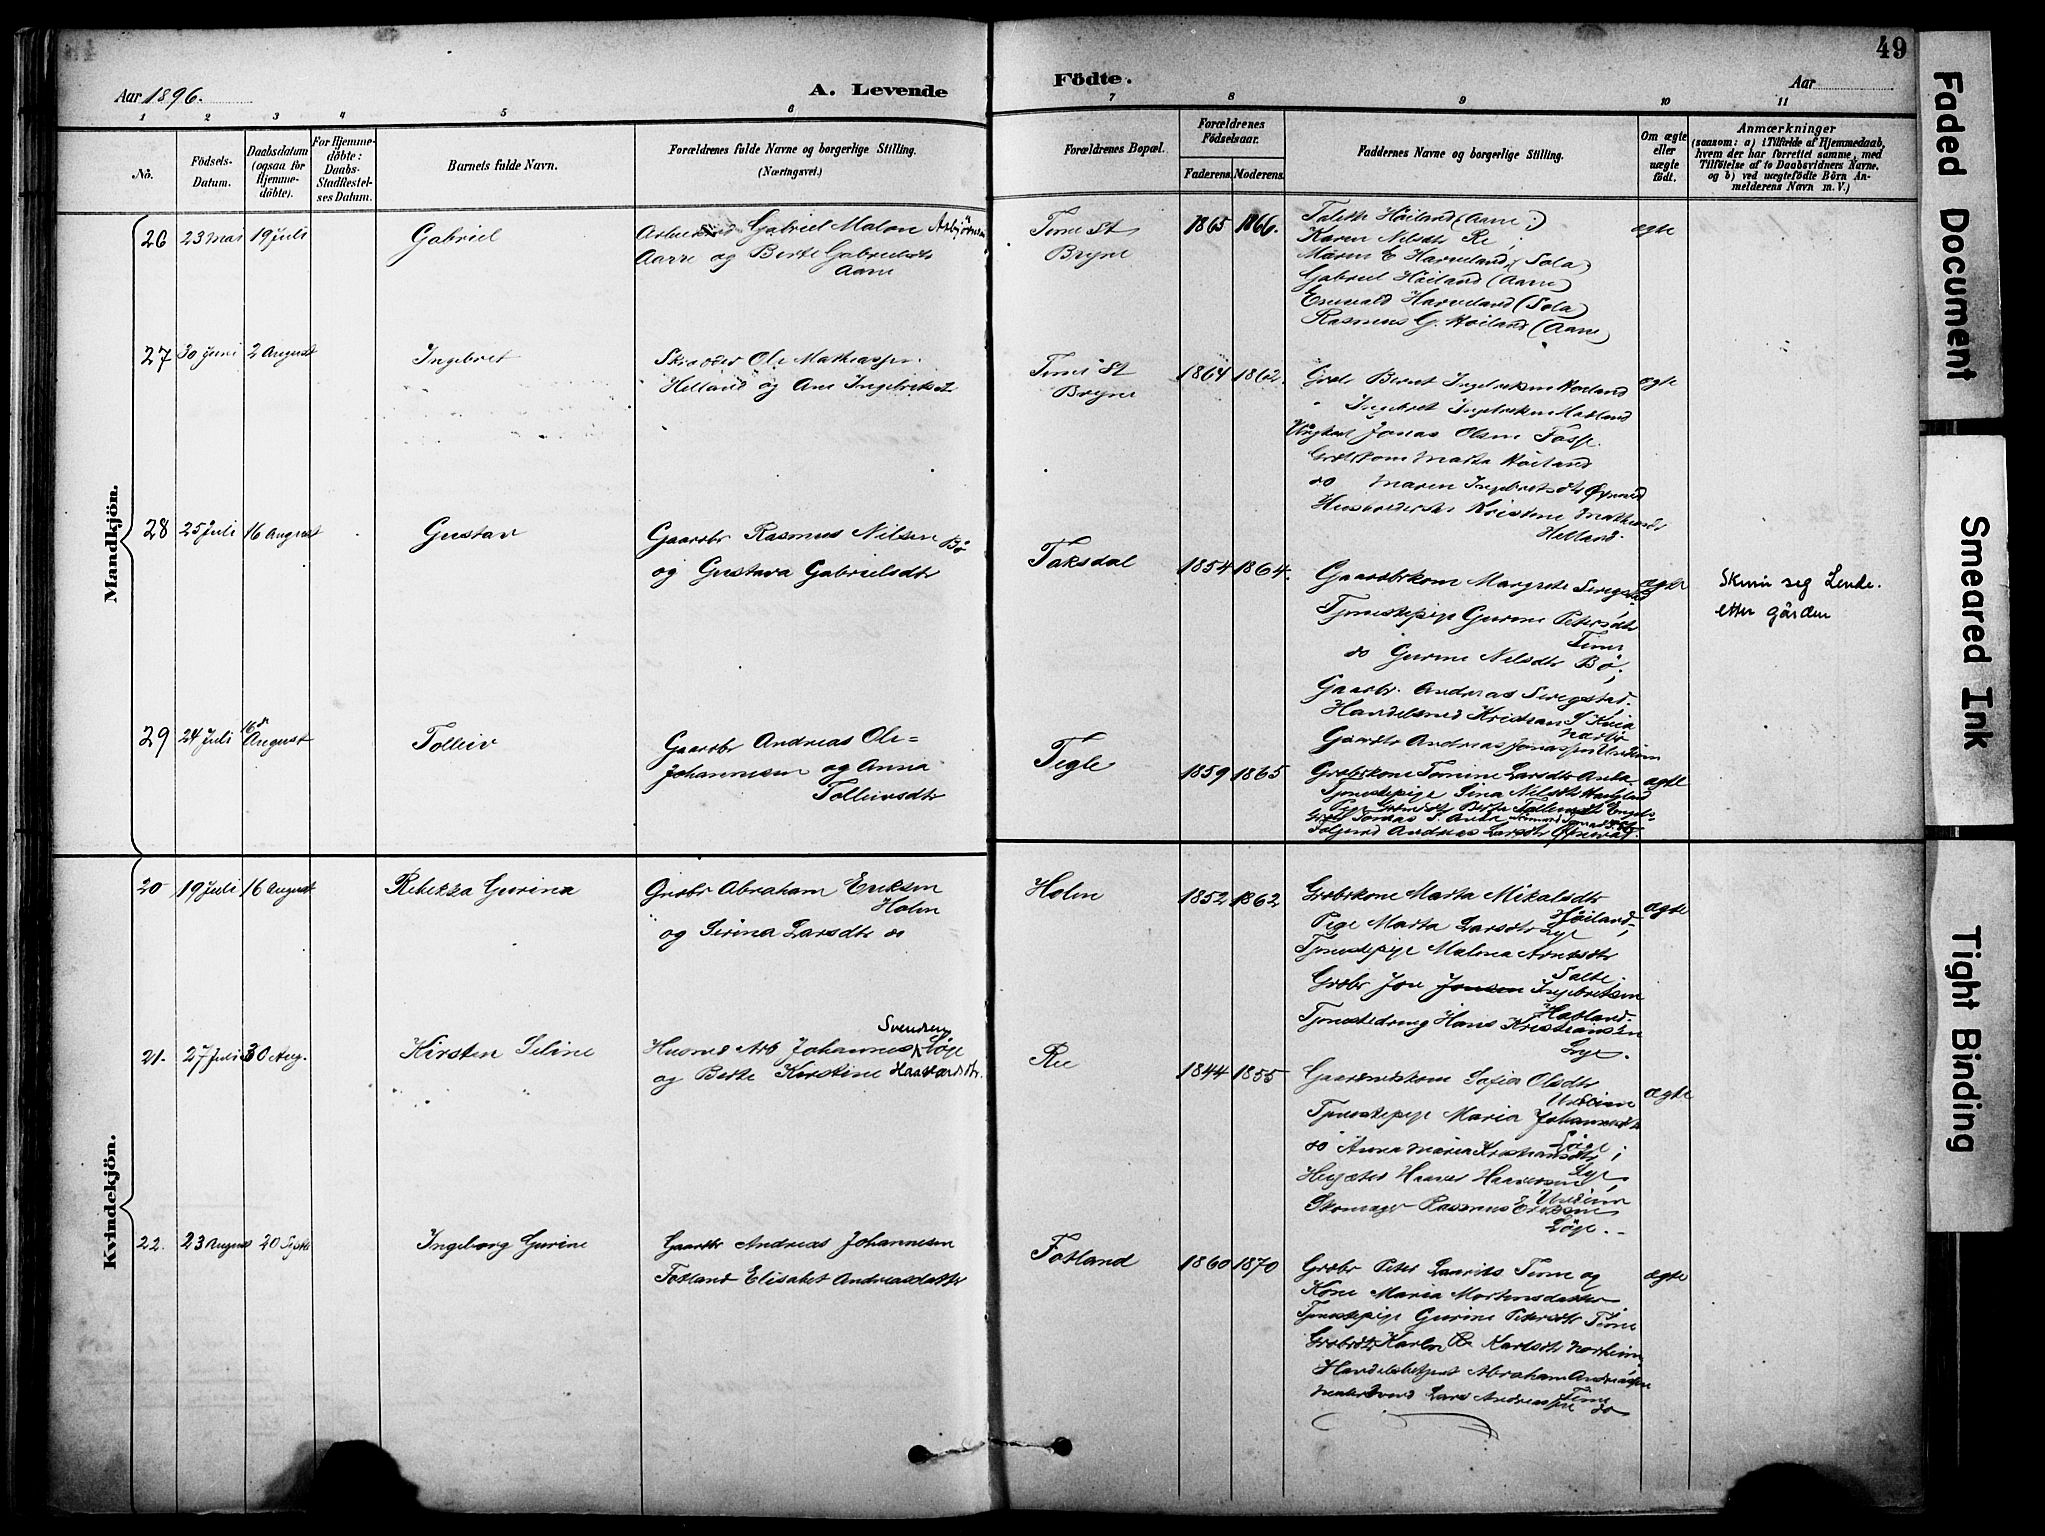 49
Aar 1896.
A. Levende
Födte.
Aar
1 2 3 4 5 6 7 8 9 10 11
No.
Födsels-
Datum.
Daabsdatum
(ogsaa for
Hjemme-
döbte).
For Hjemme-
döbte:
Daabs-
Stadfæstel-
ses Datum.
Barnets fulde Navn.
Forældrenes fulde Navne og borgerlige Stilling.
(Næringsvei.)
Forældrenes Bopæl.
Forældrenes
Födselsaar.
Faderens. Moderens.
Faddernes Navne og borgerlige Stilling.
Om ægte
eller
uægte
født.
Anmærkninger
(saasom: a) i Tilfælde af Hjemmedaab,
hvem der har forrettet samme, med
Tilföielse af to Daabsvidners Navne.
og b) ved uægtefödte Börn An-
melderens Navn m. V.)
Mandkjön.
26 23 Mai 19 Juli Gabriel
Gabriel Malon Asbjörnsen
Aarre og Berte Gabrielsdtr
Aarre
Time St
Bryne
1865 1866. ægte
Taletta Höiland (Aarre)
Karen Nilsdtr Re
Maren E Harveland (Sola)
Gabriel Höiland (Aarre)
Harveland (Sola)
Rasmus G. Höiland (Aarre)
27 30 Juni 2 August Ingebret
Skrædder Ole Mathiassen
Helland og Ane Ingebretsdtr
Time St
Bryne
1864 1862. ægte
Grdbr Bernt Ingebretsen Höiland
" Ingebret Ingebretsen Hatland
Ungkarl Jonas Olsen Fosse
Marta Höiland
do Maren Ingebretsdtr
Kristine Mathiasdtr
Helland.
28 25 Juli 16 August Gustav
Gaardbr Rasmus Nilsen Bö
og Gustava Gabrielsdtr
Taksdal
1854 1864. ægte
Gaardbrkone Margrete Seregstad
Tjenestepige Gurine Petersdtr
Time
do Gurine Nilsdtr Bö,
Gaardbr. Andreas Seregstad.
Handelsmd Kristian S Kvia
Nærbö
Gaardbr Andreas Jonassen Undheim
Skriv seg Lende.
etter gården
29 24 Juli 16de August Tolleiv
Gaardbr Andreas Ole-
Johannesen og Anna
Tolleivsdtr
Tegle
1859 1865 ægte
Grdbrkone Tomine Larsdtr Anda
Tjenestepige Sina Nilsdtr
Andreas Larsdtr
Kvindekjön.
20 19 Juli 16 August Rebekka Gurina
Grdbr Abraham Eriksen
Holm
og Serina Larsdtr do
Holm
1852 1862 ægte
Grdbrkone Marta Mikalsdtr
Höiland,
Pige Marta Larsdtr Lye
Tjenestepige Malena Arntsdtr
Salte
Grdbr Jon Jonsen Ingebretsen
Hatland
Tjenestedreng Hans Kristiansen
Lye.
21. 27 Juli 30 Aug. Kirsten Seline
Svendsen
Husmd Arb Johannes Löge
og Berte Kirstine Haavardsdtr.
Re
1844 1855 ægte
Sofia Olsdtr
Undheim
Tjenestepige Maria Johannesdtr
Löge;
do Anna Maria Kristiansdtr
Lye
Haaver Haaversen
Undheim
Skomager Rasmus Eriksen
Löge.
22. 23 August 20 Septr Ingeborg Gurine
Gaardbr Andreas Johannesen
Fotland Elisabet Andreasdatter
Fotland
1860 1870 ægte
Grdbr Peter Laurits Time og
Kone Maria Mortensdatter
Tjenestepige Gurine Petersdtr Time
Karen Karlsdtr Norheim
Handelsbetjent Abraham Andreassen
Time
Lars Andreassen do
Faded Document
Smeared Ink
Tight Binding